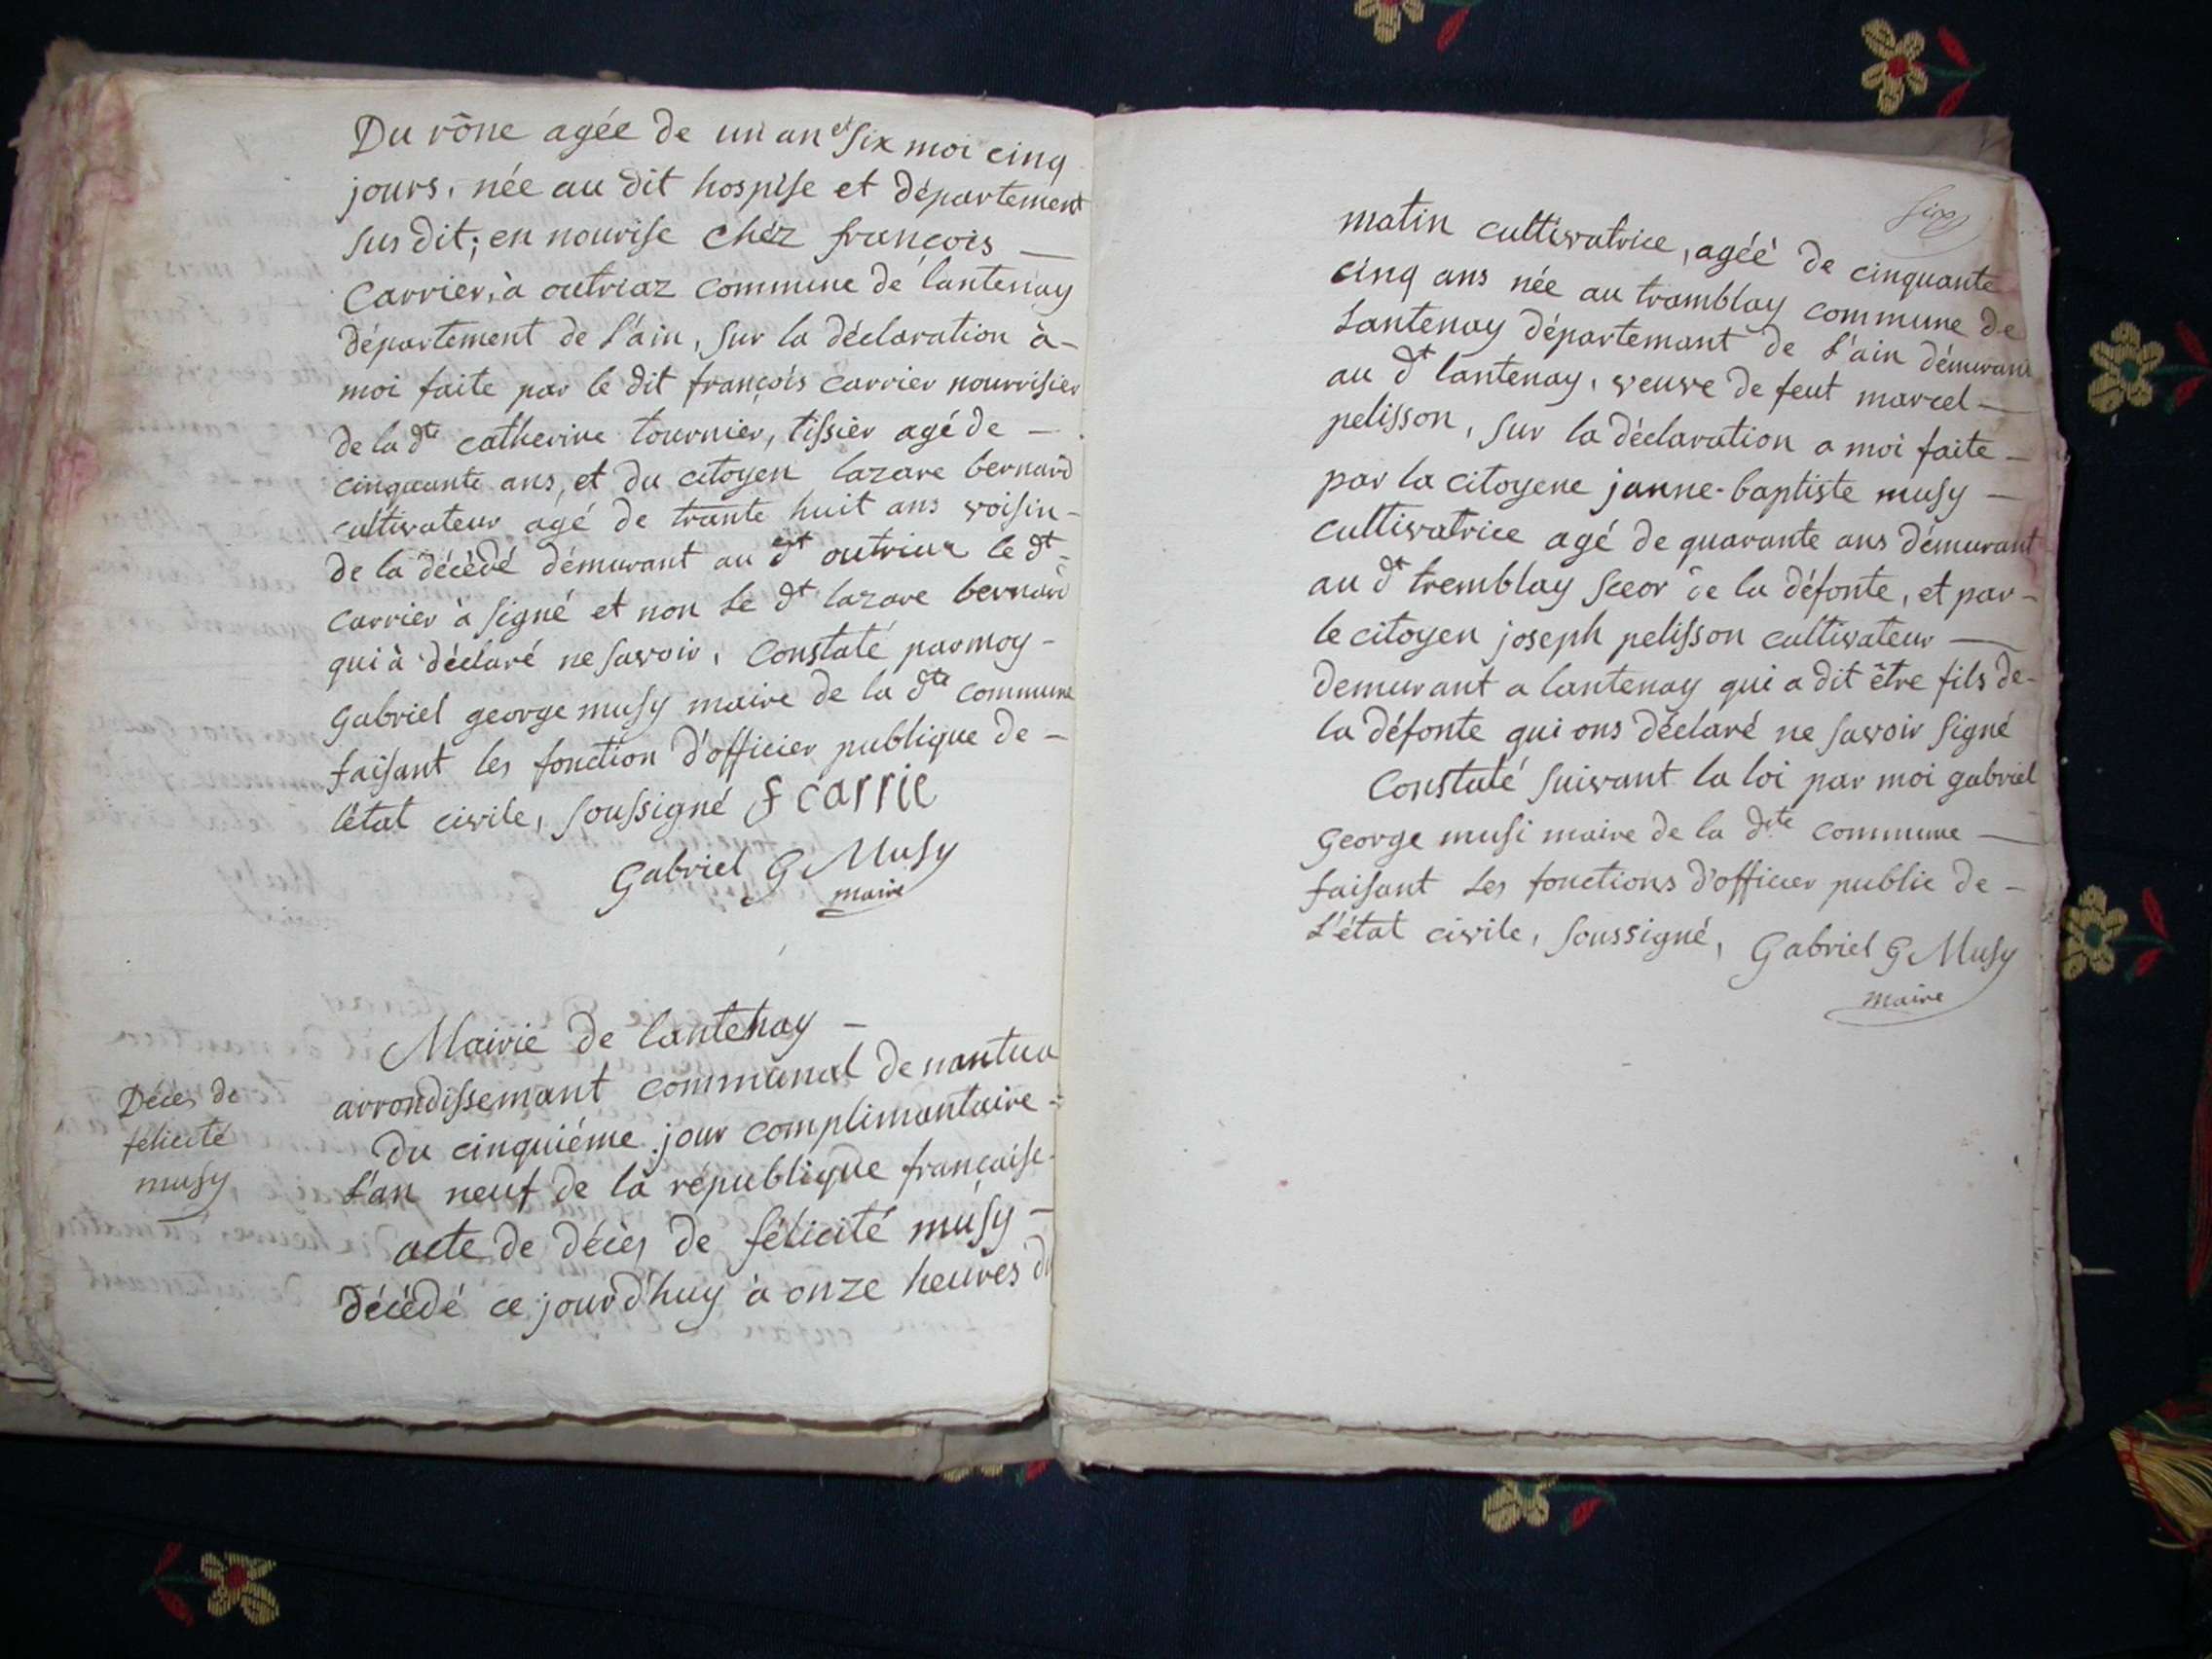 Du rône agée de un an et six moi cinq
jours, née au dit hospise et département
sus dit; en nourise chéz françois —
Carrier, à outriaz commune de lantenay
département de L'ain, sur la déclaration à -
moi faite par le dit françois carrier nourrisier
de la dte catherine tournier, tissier agé de —
cinquante ans, et du citoyen lazare bernard
cultivateur agé de trante huit ans voisin -
de la décédé démurant au dt outriaz le dt -
carrier à signé et non le dt lazare bernard
qui à déclaré ne savoir, Constaté par moy -
gabriel george musy maire de la dte commune
faisant les fonction d'officier publique de -
l'état civile, soussigné f carrie
Gabriel G Musy
maire
Mairie de lantenay —
arrondissemant communal de nantua
Décès de
félicité
musy
Du cinquiéme jour complimantaire -
L'an neuf de la république française -
acte de décès de félicité musy -
décédé ce jourd'huy à onze heures du
six
matin cultivatrice, agéé de cinquante
cinq ans née au tramblay commune de
Lantenay départemant de L'ain démurant
au dt lantenay, veuve de feut marcel —
pelisson, sur la déclaration a moi faite -
par la citoyene janne-baptiste musy —
cultivatrice agé de quarante ans démurant
au dt tremblay sœor de la défonte, et par -
le citoyen joseph pelisson cultivateur —
demurant a lantenay qui a dit être fils de -
la défonte qui ons déclaré ne savoir signé
Constaté suivant la loi par moi gabriel
george musi maire de la dite commune —
faisant les fonctions d'officier public de -
L'état civile, soussigné, Gabriel G Musy
maire